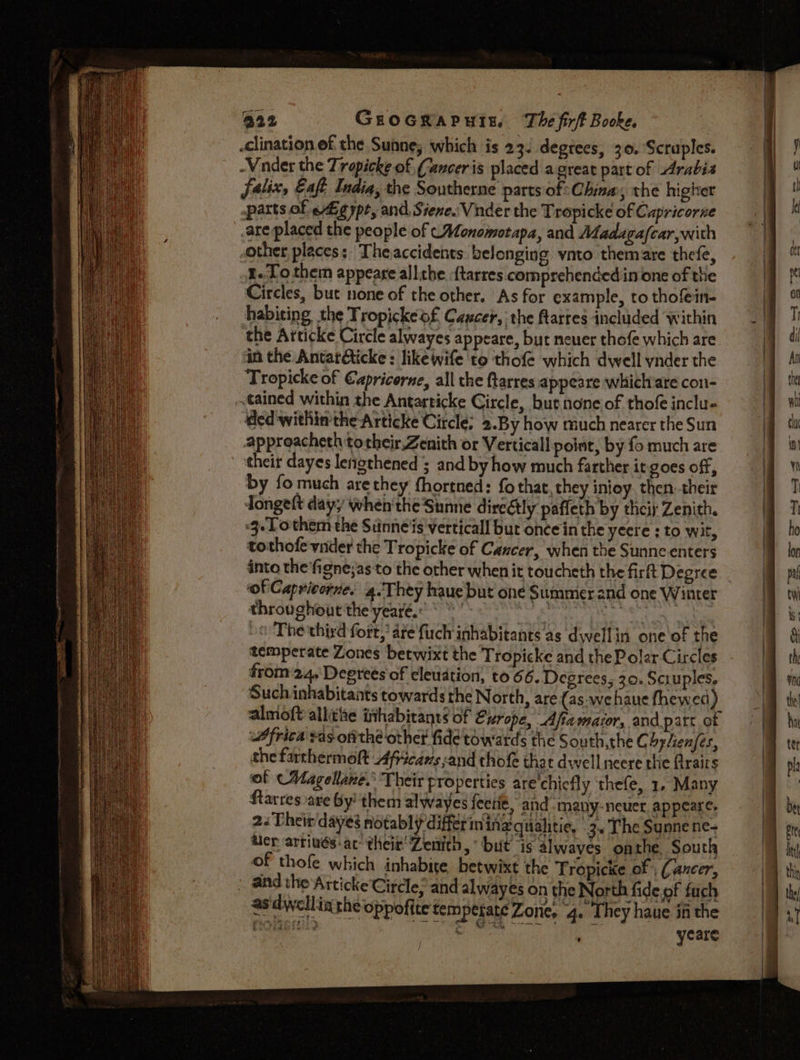 222 GEOGRAPHIE. The first Booke.
clination of the Sunne, which is 23. degrees, 30. Scruples.
Vnder the Tropicke of Cancer is placed a great part of Arabia
fælix, East India, the Southerne parts of China, the higher
parts of Ægypt, and Siene. Vnder the Tropicke of Capricorne
are placed the people of Monomotapa, and Madagascar, with
other places: The accidents belonging vnto them are these,
1. To them appeare all the starres comprehended in one of the
Circles, but none of the other. As for example, to those in-
habiting the Tropicke of Cancer, the starres included within
the Articke Circle alwayes appeare, but neuer those which are
in the Antarcticke: likewise to those which dwell vnder the
Tropicke of Capricorne, all the starres appeare which are con-
tained within the Antarticke Circle, but none of those inclu-
ded within the Articke Circle: 2. By how much nearer the Sun
approacheth to their Zenith or Verticall point, by so much are
their dayes lengthened; and by how much farther it goes off,
by so much are they shortned: so that, they inioy then their
longest day, when the Sunne directly passeth by their Zenith.
3. To them the Sunne is verticall but once in the yeere: to wit,
to those vnder the Tropicke of Cancer, when the Sunne enters
into the signe; as to the other when it toucheth the first Degree
of Capricorne. 4. They haue but one Summer and one Winter
throughout the yeare.
The third sort, are such inhabitants as dwell in one of the
temperate Zones betwixt the Tropicke and the Polar Circles
from 24. Degrees of eleuation, to 66. Degrees, 30. Scruples.
Such inhabitants towards the North, are (as we haue shewed)
almost all the inhabitants of Europe, Asia maior, and part of
Africa: as on the other side towards the South, the Chylienses,
the farthermost Africans, and those that dwell neere the straits
of Magellane. Their properties are chiefly these, 1. Many
starres are by them alwayes seene, and many neuer appeare.
2. Their dayes notably differ in inæqualitie. 3. The Sunne ne-
uer arriues at their Zenith, but is alwayes on the South
of those which inhabite betwixt the Tropicke of Cancer,
and the Articke Circle, and alwayes on the North side of such
as dwell in the opposite temperate Zone. 4. They haue in the
yeare